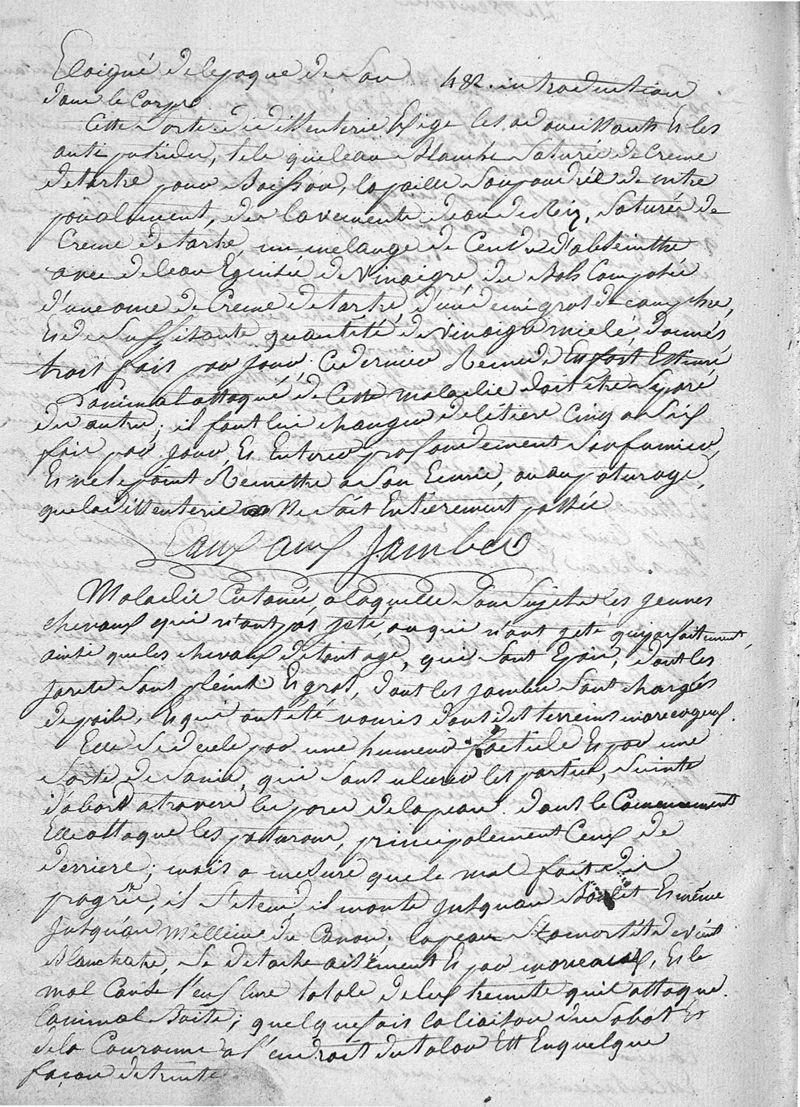 Eloigné de lepoque de Son 482. introduction
dans le Corps
Cette Sorte de dissenterie Exige les adoucissants Es les
anti putrides, tels que leau Blanche Saturée de Creme
de tartre pour Boisson, la paille Saupoudrée de nitre
pour aliment, des lavements deau de Riz, Saturée de
Creme de tartre, un melange de Cendre d'absinthe
avec de leau Eguisée de Vinaigre des Bols Composés
d'une once de Creme de tartre, d'un demi gros de camphre,
Es de Suffisante quantité de Vinaigre mielé donnés
trois fois par jour; Ce dernier Remede Est fort Estimé
L'animal attaqué de Cette maladie doit être Separé
des autres; il faut lui changer de litiere Cinq ou Six
fois par jour Es Enterrer profondement Son fumier,
Es ne le point Remettre a Son Ecurie, ou au paturage,
que la dissenterie Ne Soit Entierement passée
Eaux aux Jambes
Maladie Cutanée, a laquelle Sont Sujets les jeunes
chevaux qui n'ont pas jeté, ou qui n'ont jeté qu'imparfaitement,
ainsi que les chevaux de tout age, qui Sont Epais, dont les
jarets Sont pleins Es gros, dont les jambes Sont chargés
de poils, Es qui ont été nouris dans des terreins marecageux.
Elle Se decele par une humeur foetide Es par une
Sorte de Sanie, qui Sans ulcerer les parties, Suinte
d'abord a travers les pores de la peau. dans le Commencement
Elle attaque les paturons, principalement Ceux de
derriere; mais a mesure que le mal fait des
progrès, il S'etend, il monte jusquau Boulet Es même
jusqu'au millieu du Canon. la peau S'amortit devient
Blanchatre, Se detache aisément Es par morceaux, Es le
mal Cause l'enflure totale de lextremité quil attaque.
L'animal Boite; quelque fois la liaison du Sabot Es
de la Couronne a l'endroit du talon Est En quelque
façon detruite